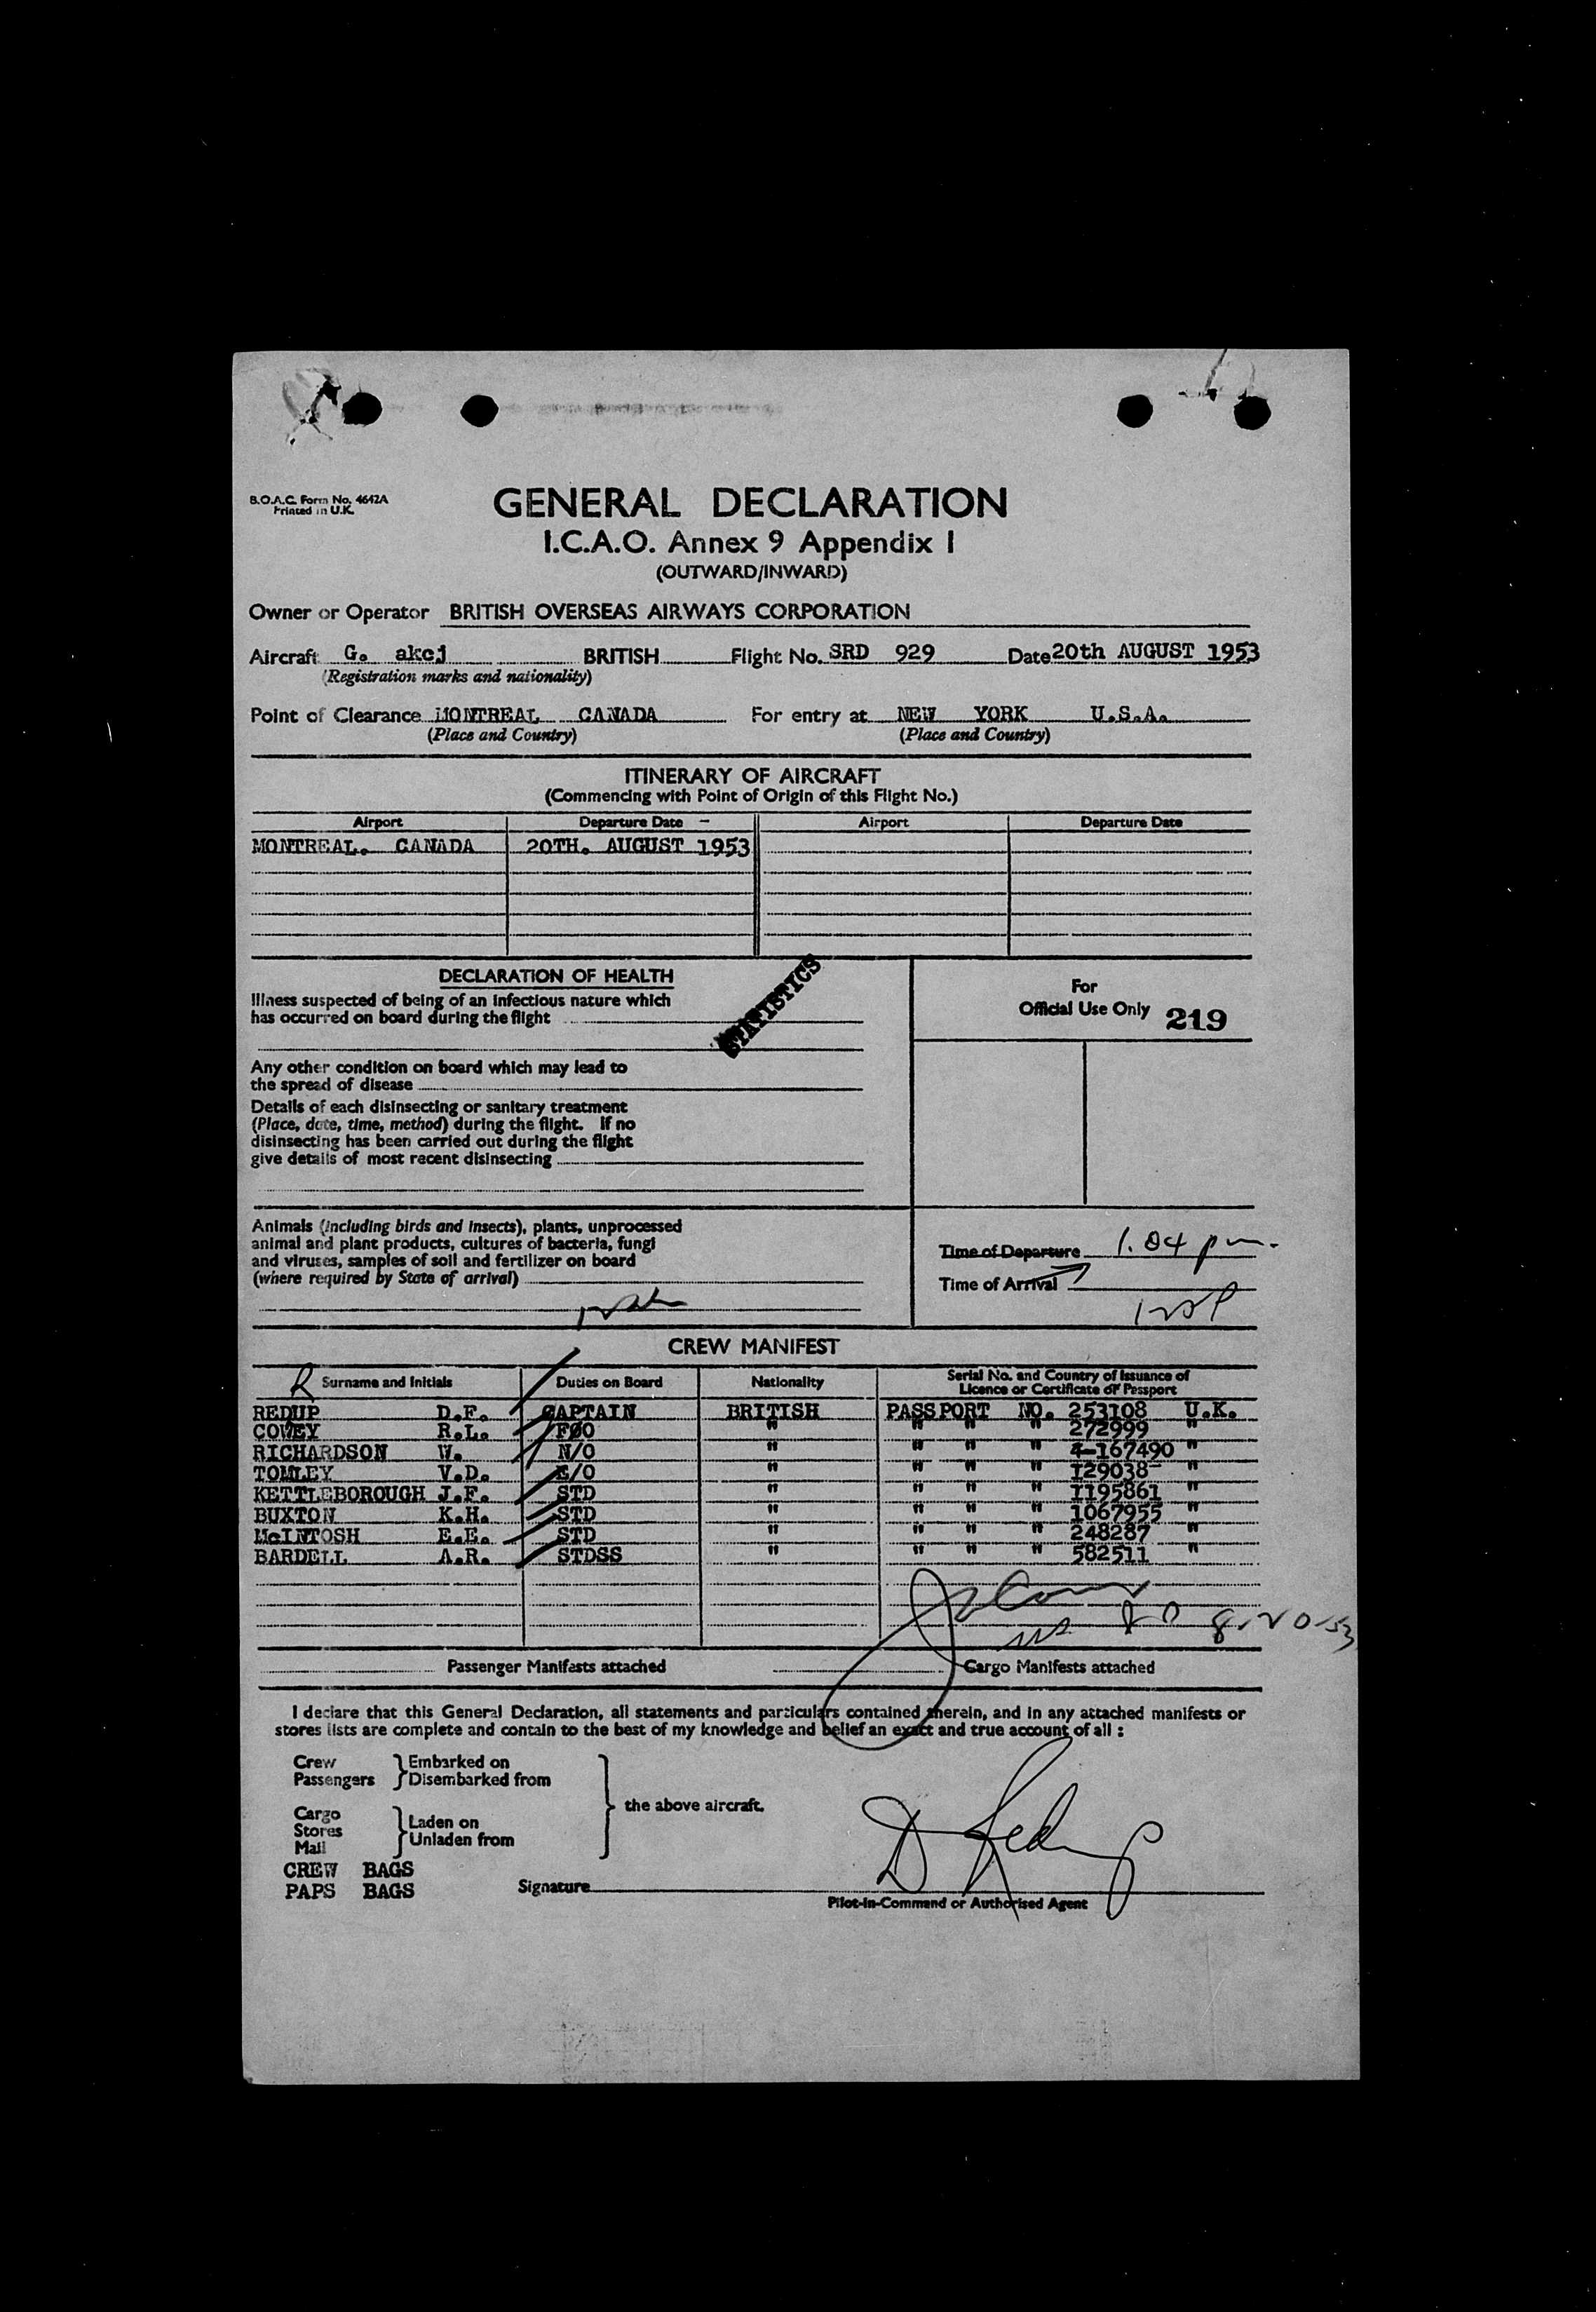 B.O.A.C. Form No. 4642A
Printed in U.K.
GENERAL DECLARATION
I.C.A.O. Annex 9 Appendix I
(OUTWARD/INWARD)
Owner or Operator BRITISH OVERSEAS AIRWAYS CORPORATION
Aircraft G. akcj BRITISH Flight No. SRD 929 Date 20th AUGUST 1953
(Registration marks and nationality)
Point of Clearance MONTREAL CANADA For entry at NEW YORK U.S.A.
(Place and Country) (Place and Country)
ITINERARY OF AIRCRAFT
(Commencing with Point of Origin of this Flight No.)
Airport Departure Date Airport Departure Date
MONTREAL. CANADA 20TH. AUGUST 1953
DECLARATION OF HEALTH
Illness suspected of being of an infectious nature which
has occurred on board during the flight
STATISTICS
For
Official Use Only 219
Any other condition on board which may lead to
the spread of disease
Details of each disinsecting or sanitary treatment
(Place, date, time, method) during the flight. If no
disinsecting has been carried out during the flight
give details of most recent disinsecting
Animals (including birds and insects), plants, unprocessed
animal and plant products, cultures of bacteria, fungi
and viruses, samples of soil and fertilizer on board
(where required by State of arrival)
Time of Departure 1.04 pm.
Time of Arrival
CREW MANIFEST
R Surname and Initials Duties on Board Nationality Serial No. and Country of Issuance of
Licence or Certificate or Passport
REDUP D.F. CAPTAIN BRITISH PASSPORT NO. 253108 U.K.
COWEY R.L. F/O " " " " 272999 "
RICHARDSON W. N/O " " " " 4-167490 "
TOMLEY V.D. E/O " " " " 129038 "
KETTLEBOROUGH J.F. STD " " " " 1195861 "
BUXTON K.H. STD " " " " 1067955 "
McINTOSH E.E. STD " " " " 248287 "
BARDELL A.R. STDSS " " " " 582511 "
8-20-53
Passenger Manifests attached Cargo Manifests attached
I declare that this General Declaration, all statements and particulars contained therein, and in any attached manifests or
stores lists are complete and contain to the best of my knowledge and belief an exact and true account of all :
Crew Embarked on
Passengers Disembarked from
the above aircraft.
Cargo
Stores Laden on
Mail Unladen from
CREW BAGS
PAPS BAGS
Signature D Redup
Pilot-in-Command or Authorised Agent